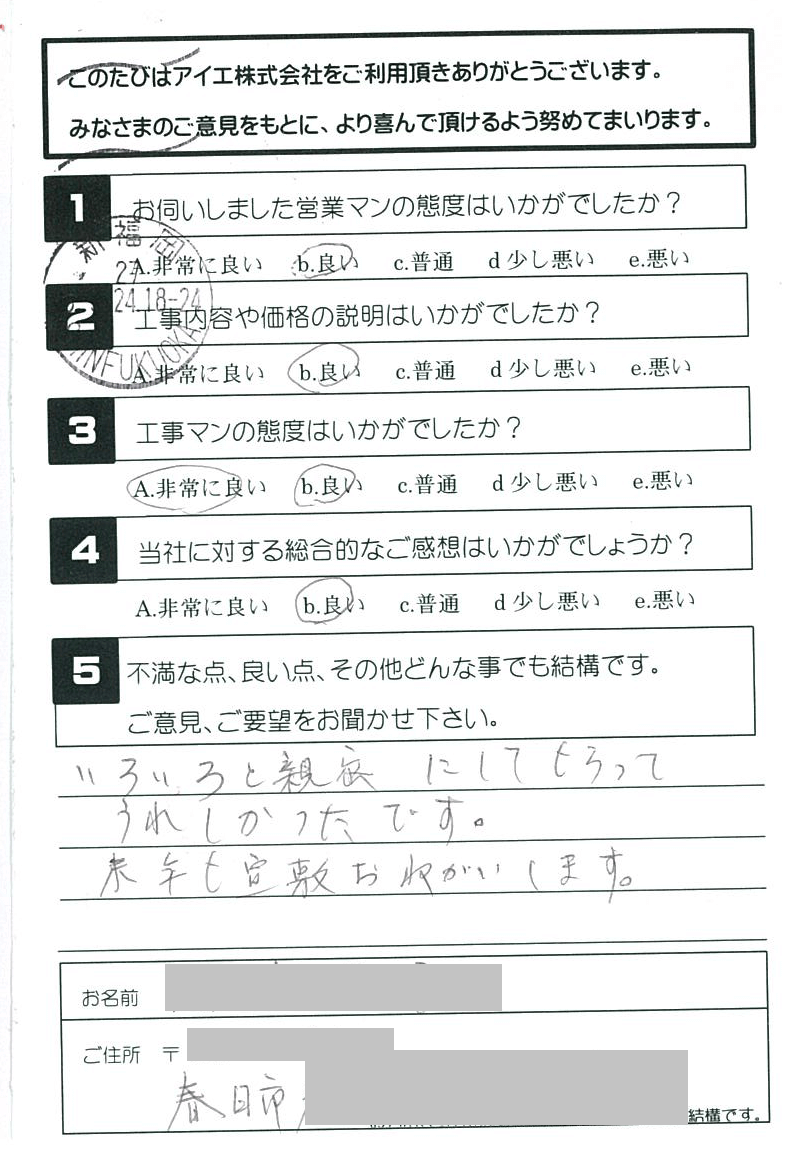 このたびはアイエ株式会社をご利用頂きありがとうございます。
みなさまのご意見をもとに、より喜んで頂けるよう努めてまいります。
1 お伺いしました営業マンの態度はいかがでしたか?
新福岡
27
A.非常に良い b.良い c.普通 d 少し悪い e.悪い
24.18-24
2 工事内容や価格の説明はいかがでしたか?
INFUKUOKA
A.非常に良い b.良い c.普通 d 少し悪い e.悪い
3 工事マンの態度はいかがでしたか?
A.非常に良い b.良い c.普通 d 少し悪い e.悪い
4 当社に対する総合的なご感想はいかがでしょうか?
A.非常に良い b.良い c.普通 d 少し悪い e.悪い
5 不満な点、良い点、その他どんな事でも結構です。
ご意見、ご要望をお聞かせ下さい。
いろいろと親 にしてもらって
うれしかったです。
来年も宜敷おねがいします。
お名前
ご住所 〒
春日市
結構です。